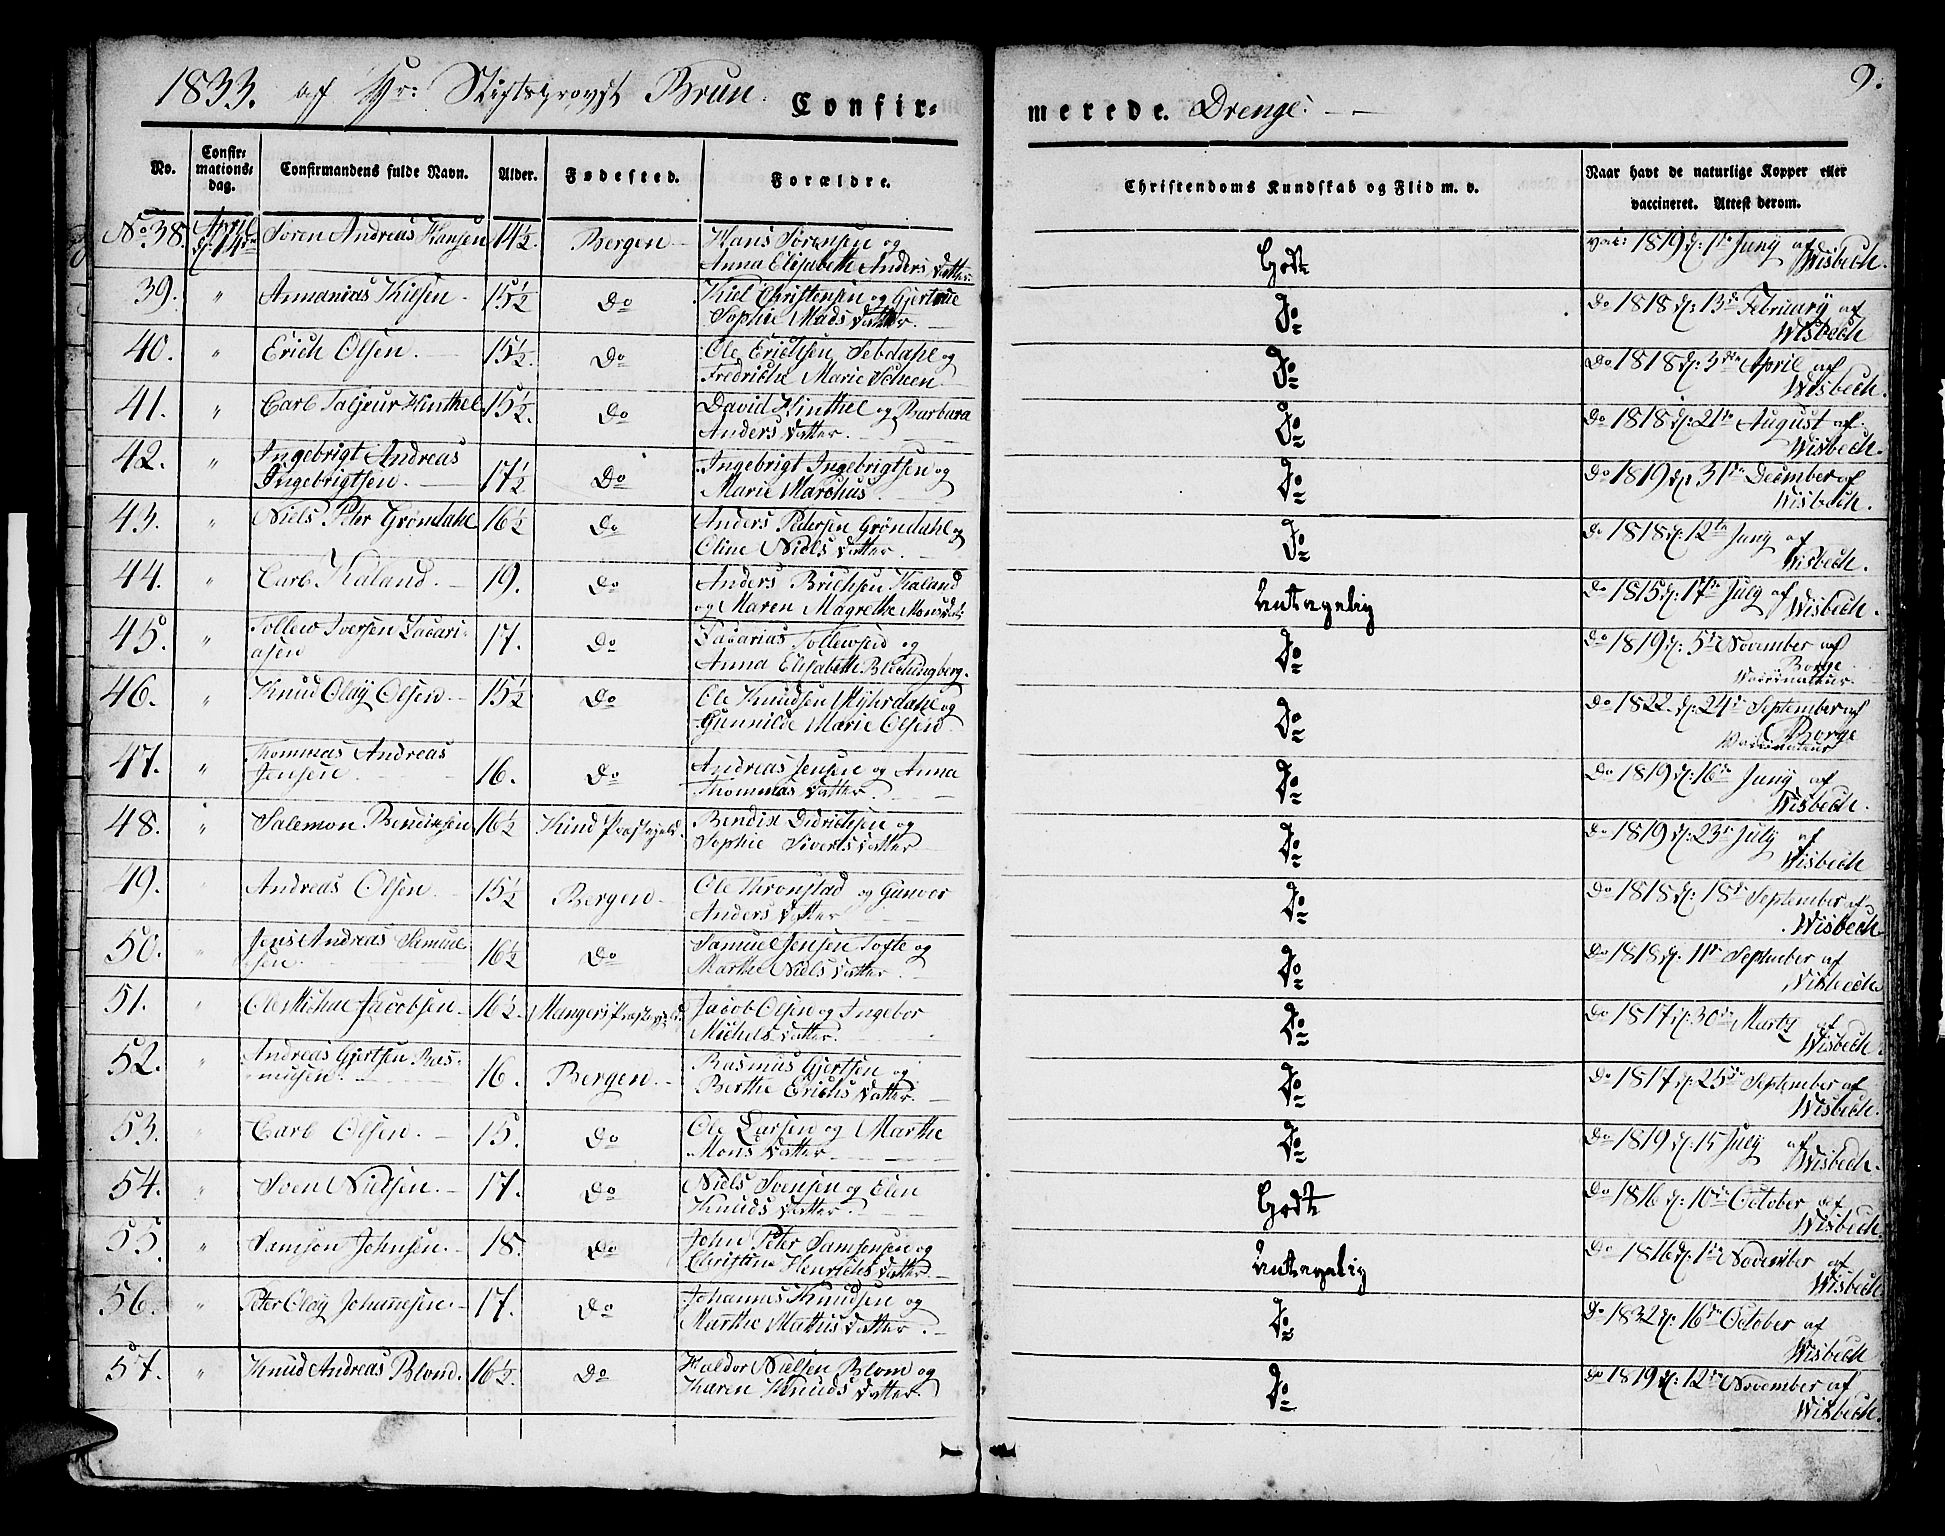 1833. af Hr: Stiftsprovst Brun.
Confir-
merede. Drenge.
9.
No.
Confir-
mations-
dag.
Confirmandens fulde Navn.
Alder.
Fødested.
Forældre.
Christendoms Kundskab og Flid m. v.
Naar havt de naturlige Kopper eller
vaccineret. Attest derom.
No 38. April d: 14de Søren Andreas Hansen 14½. Bergen Hans Sørensen og
Anna Elisabeth Anders Datter. Godt vac: 1819 d: 1te Juny af
Wisbech.
39. " Annanias Kielsen. 15½ Do Kiel Christensen og Gjertrue
Sophie Mads Datter. Do Do 1818 d: 13de February af
Wisbech
40. " Erich Olsen. 15½. Do Ole Erichsen Sebdahl og
Fredriche Marie Scheen Do Do 1818 d: 3die April af
Wisbech.
41. " Carl Kinthel 15½. Do David Kinthel og Barbara
Anders Datter. Do Do 1818 d: 21de August af
Wisbech.
42. " Ingebrigt Andreas
Ingebrigtsen. 17½ Do Ingebrigt Ingebrigtsen og
Marie Marchus Do Do 1819 d: 31te December af
Wisbech.
43. " Niels Peter Grøndahl 16½ Do Anders Pedersen Grøndahl og
Oline Niels Datter. Do Do 1818 d: 12te Juny af
Wisbech.
44. " Carl Kaland. 19. Do Anders Erichsen Kaland
og Maren Magrethe Mons Datter Antagelig Do 1815 d: 17de July af Wisbech.
45. " Tollew Iversen Zacari-
asen 17. Do Zacarias Tollewsen og
Anna Elisabeth Blechingberg. Do Do 1819 d: 5te November af
Borge
Vaccinateur.
46. " Knud Olay Olsen. 15½ Do Ole Knudsen Myhrdahl og
Gunnilde Marie Olsen. Do Do 1822 d: 24de September af
Borge
Vaccinateur
47. " Thommas Andreas
Jensen 16. Do Andreas Jensen og Anna
Thommas Datter Do Do 1819 d: 16de Juny af
Wisbech.
48. " Salemon Bendixen 16½ Kind Præstegjeld. Bendix Didrichsen og
Sophie Siverts Datter Do Do 1819 d: 23de July af
Wisbech
49. " Andreas Olsen. 15½ Bergen Ole Thronstad og Gunver
Anders Datter Do Do 1818 d: 18de September af
Wisbech
50. " Jens Andreas Samuel-
sen. 16½ Do Samuel Jensen Tofte og
Marthe Niels Datter. Do Do 1818 d: 11te September af
Wisbech.
51. " Ole Michael Jacobsen 16½. Mangers Præstegjeld Jacob Olsen og Ingebor
Michels Datter. Do Do 1817 d: 30te Marty af
Wisbech.
52. " Andreas Gjertsen Ras-
musen. 16. Bergen. Rasmus Gjertsen og
Berthe Erichs Datter. Do Do 1817 d: 25de September af
Wisbech.
53. " Carl Olsen. 15. Do Ole Larsen og Marthe
Mons Datter. Do Do 1819 d: 15 July af
Wisbech.
54. " Sven Nielsen. 17. Do Niels Svensen og Elen
Knuds Datter. Godt Do 1816 d: 10de October af
Wisbech.
55. " Samson Johnsen. 18. Do John Peter Samsonsen og
Christine Henrichs Datter Antagelig Do 1816 d: 1te November af
Wisbech.
56. " Peter Olay Johannesen. 17. Do Johannes Knudsen og
Marthe Mathis Datter. Do Do 1832 d: 16de October af
Wisbech
57. " Knud Andreas Blom. 16½. Do Haldor Nielsen Blom og
Karen Knuds Datter. Do Do 1819 d: 12te November af
Wisbech.